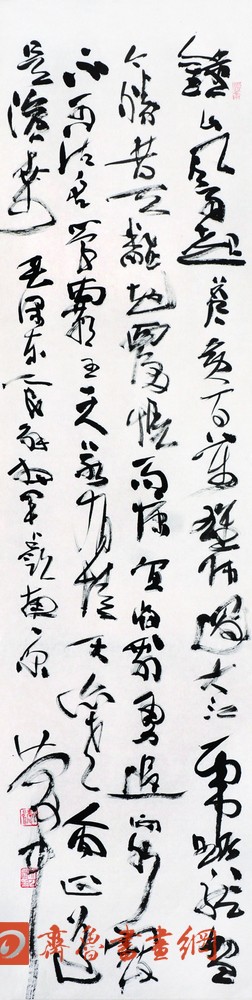 鐘山风雨起蒼黄百萬雄师過大江虎踞龙盘
今勝昔天翻地覆慨而慷宜将剩勇追穷寇
不可沽名学霸王天若有情天亦老人间正道
是滄桑 毛澤东人民解放军占领南京
齊魯書畫網